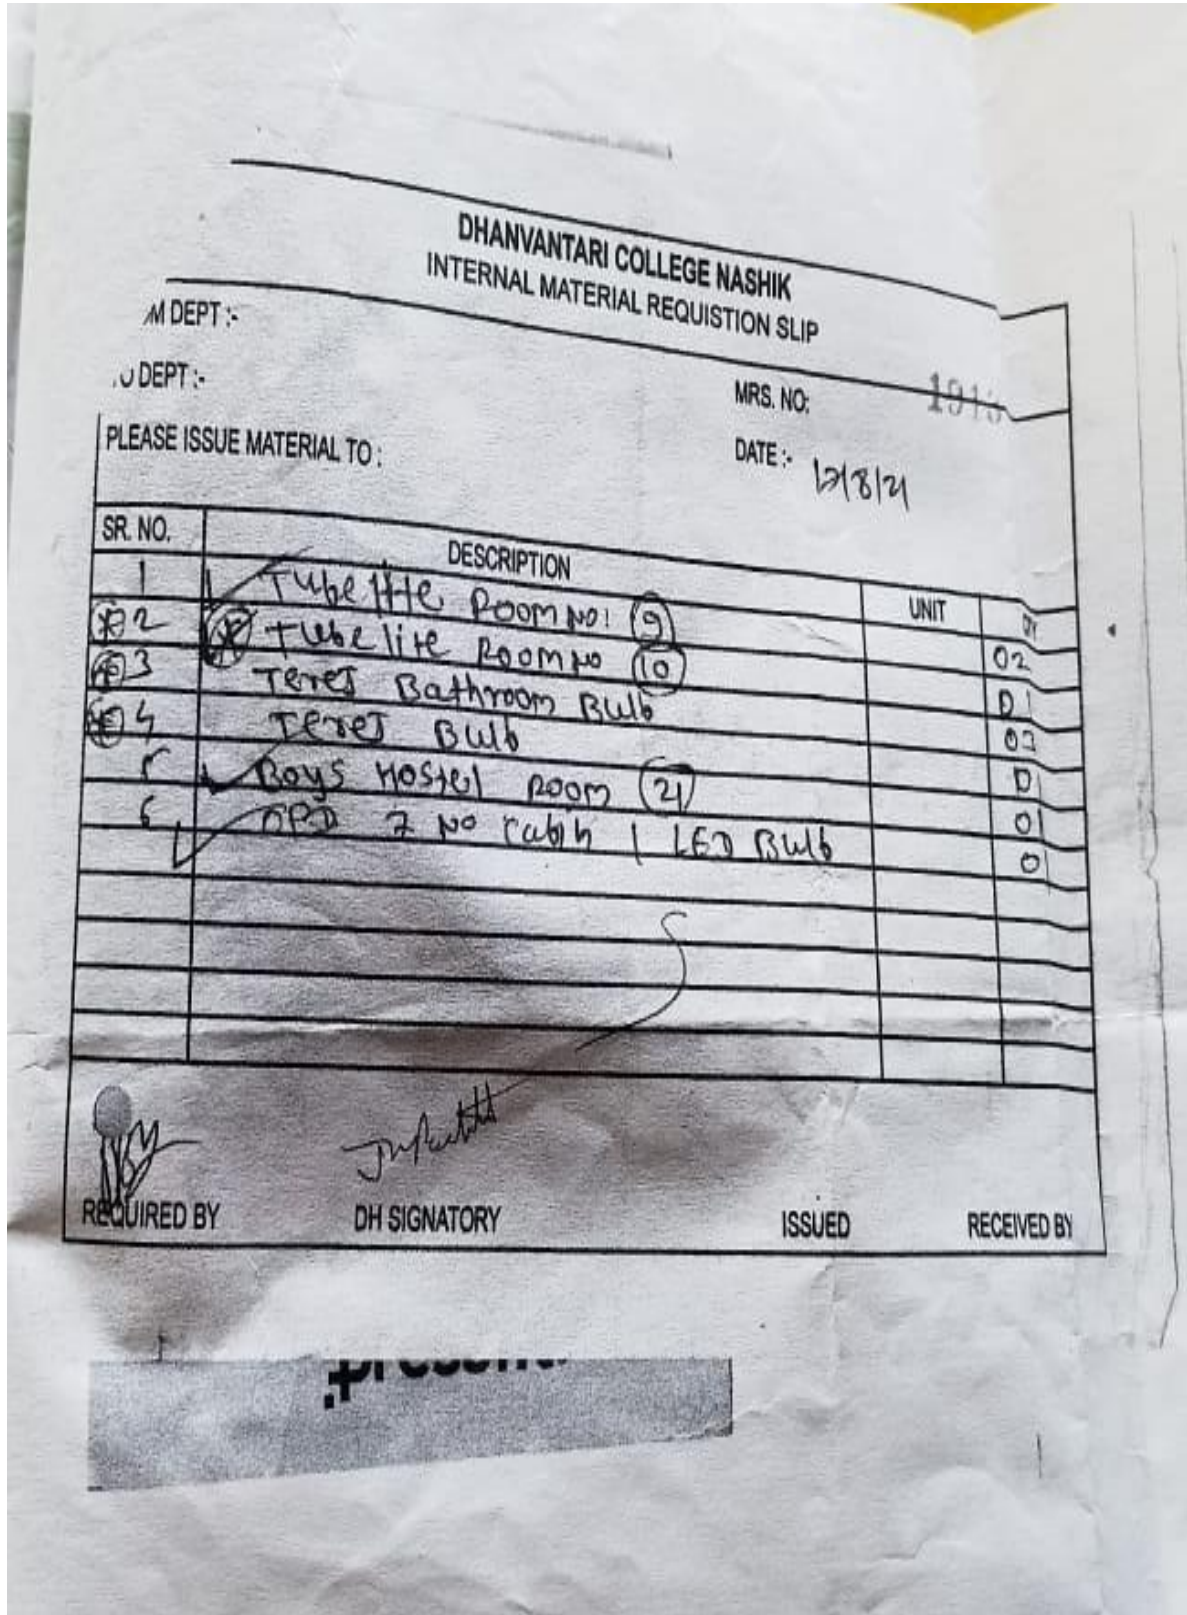 DHANVANTARI COLLEGE NASHIK
INTERNAL MATERIAL REQUISTION SLIP
M DEPT :-
DEPT :-
MRS. NO:
PLEASE ISSUE MATERIAL TO :
DATE :- 12/8/21
SR. NO. DESCRIPTION UNIT QTY
1 Tubelite Room No! 9 02
2 Tubelite Room No 10 01
3 Teres Bathroom Bulb
4 Teres Bulb 01
5 Boys Hostel Room 21 01
6 OPD 7 No Cabin 1 LED Bulb 01
REQUIRED BY DH SIGNATORY ISSUED RECEIVED BY